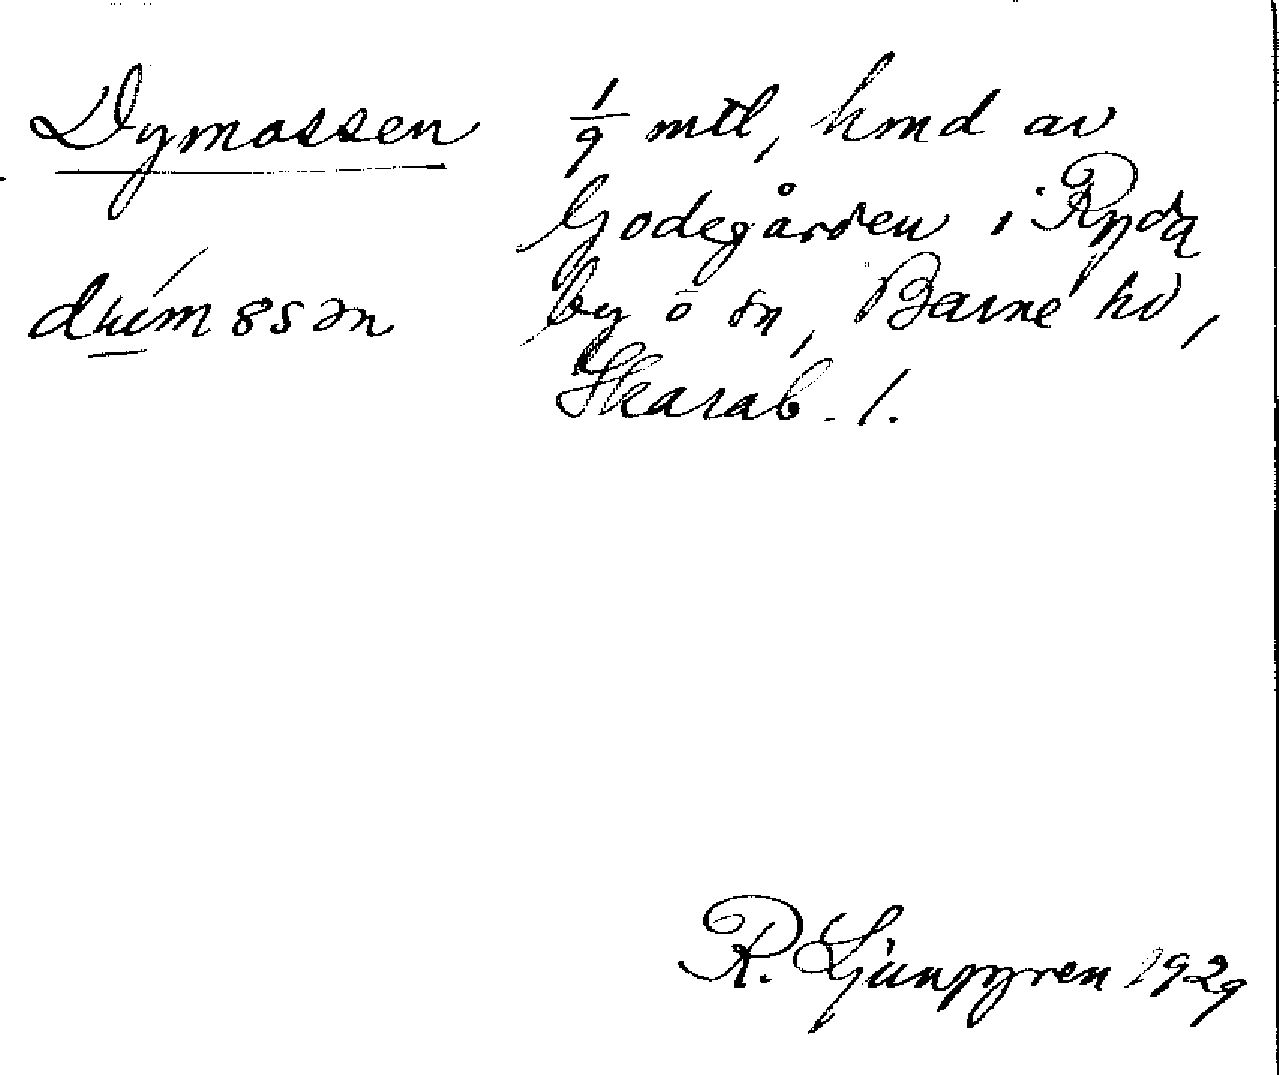 Dymossen
1/9 mtl, hmd av
Godegården i Ryda
by o sn, Barne hd,
Skarab. l.
R. Ljunggren 1929